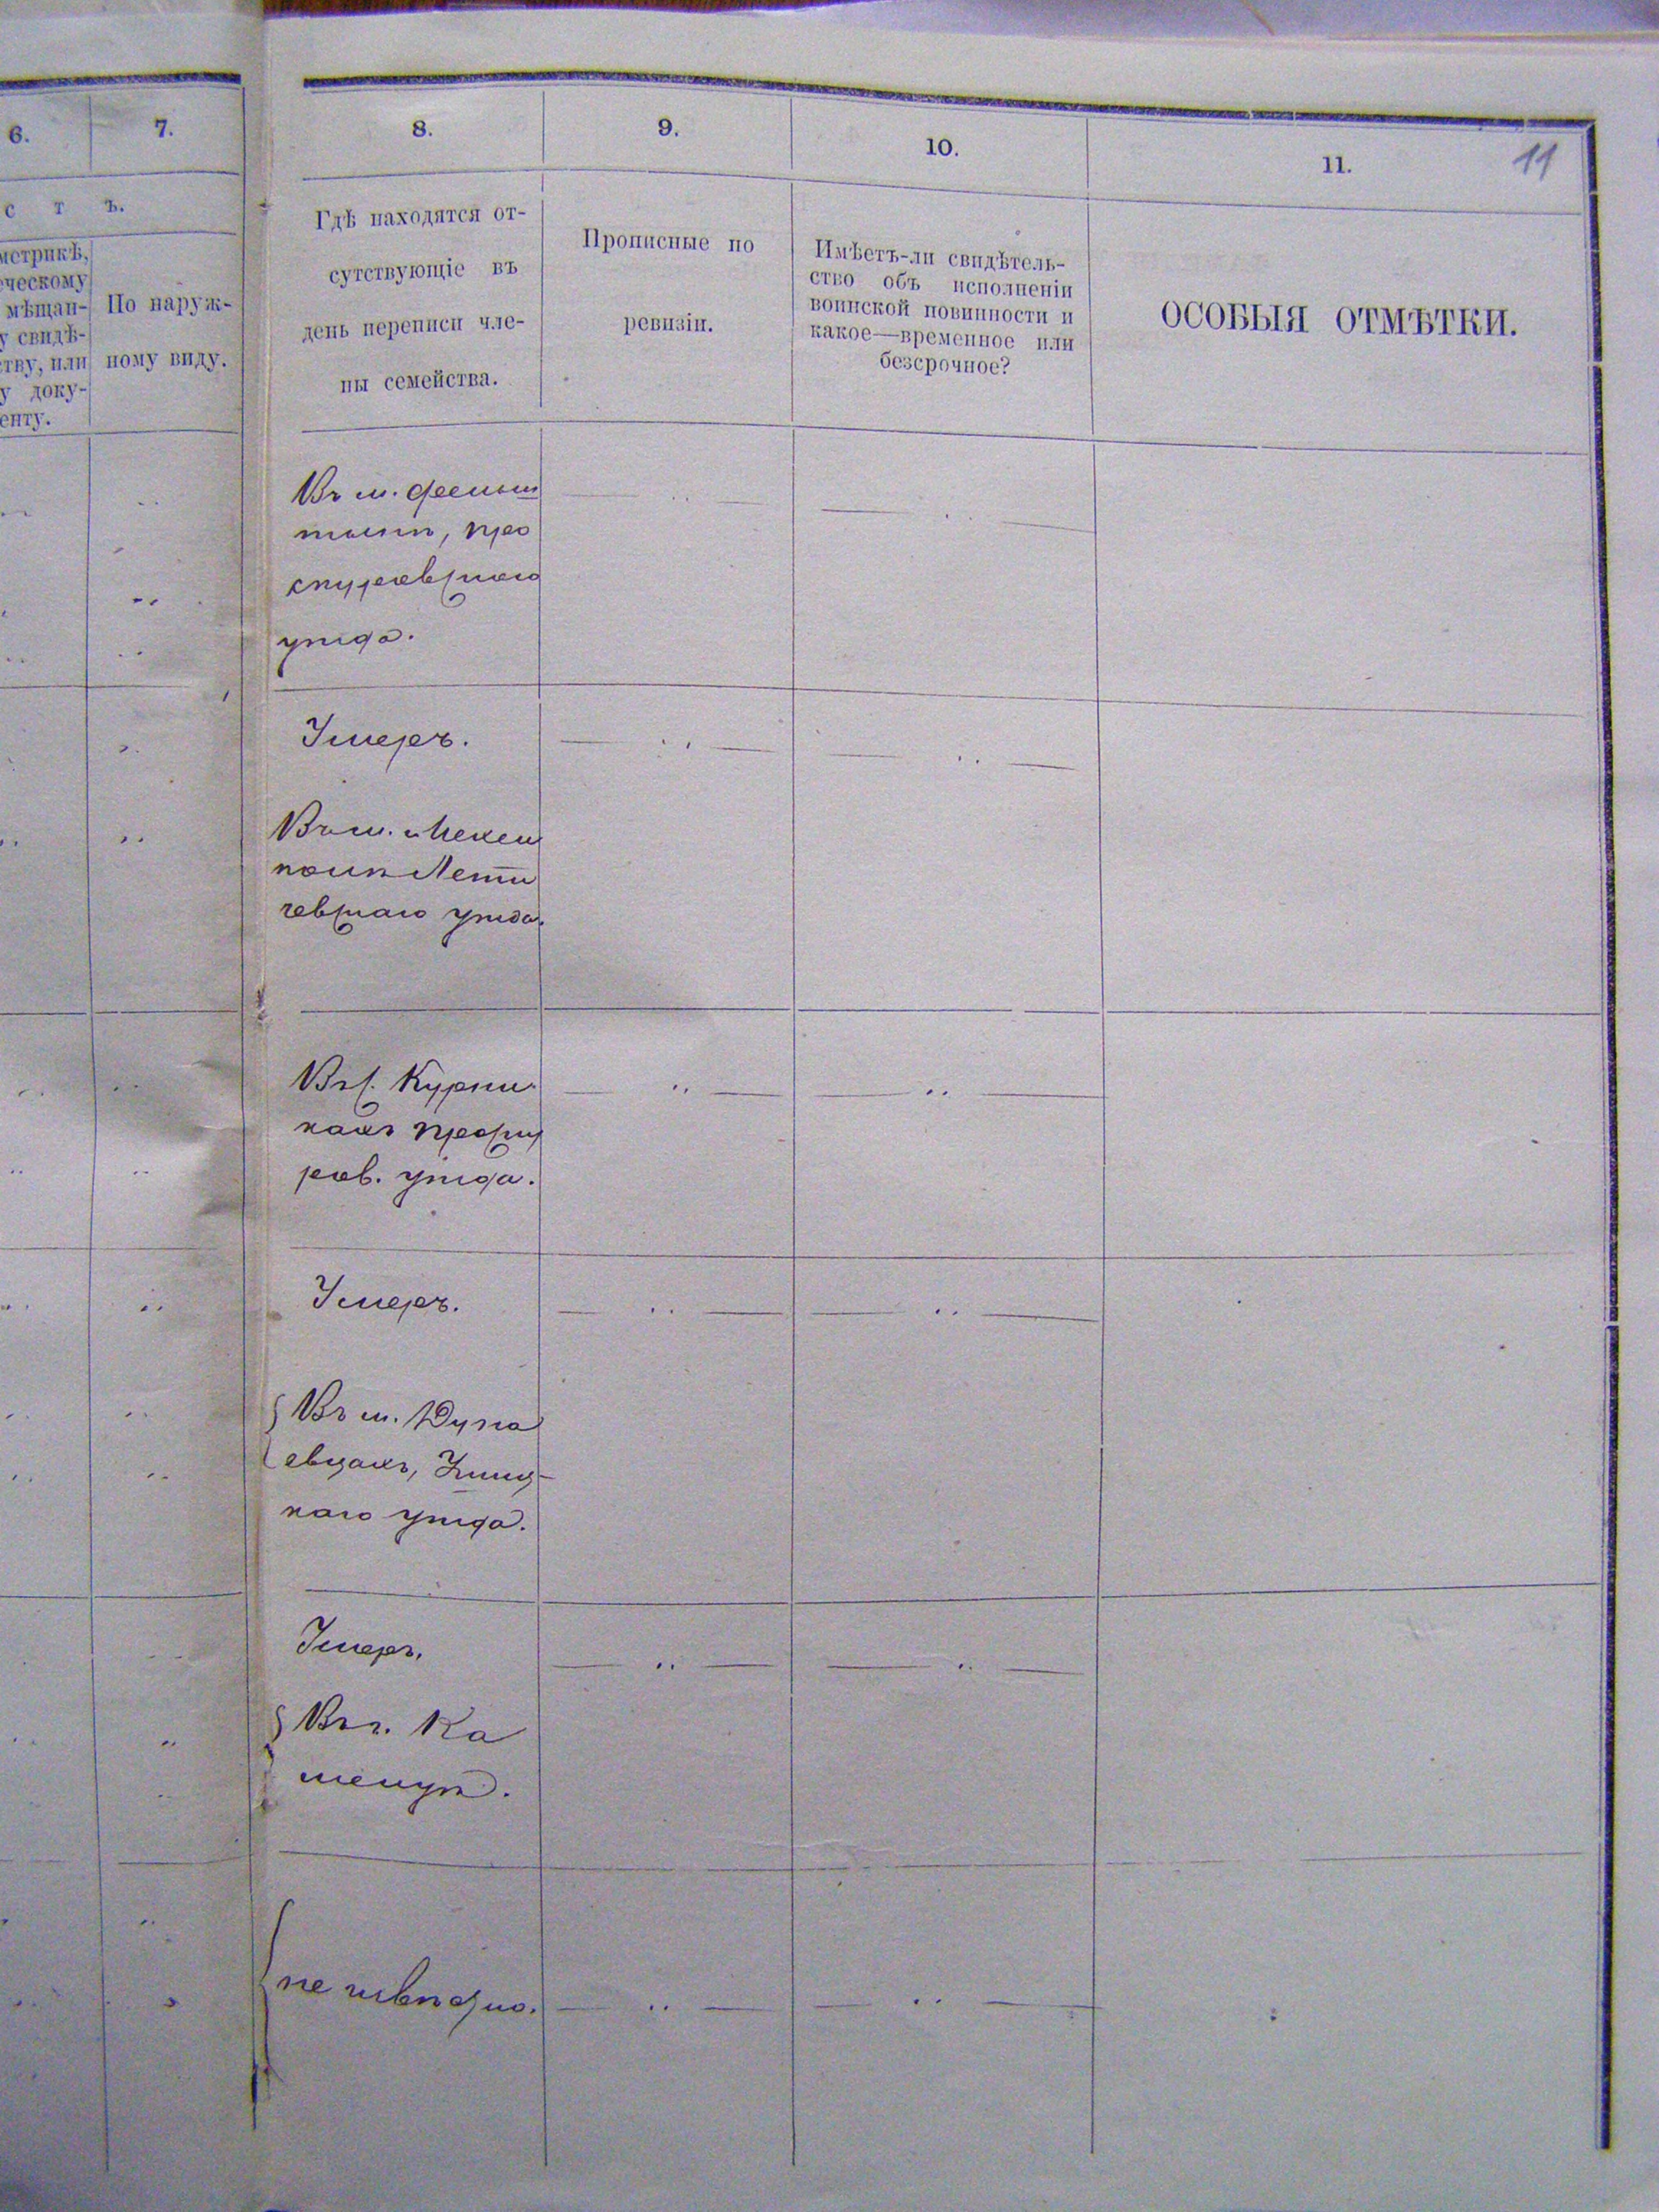 6.
7.
с т ъ.
метрикѣ,
ческому
мѣщан-
у свидѣ-
ству, или
у доку-
енту.
По наруж-
ному виду.
8.
Гдѣ находятся от-
сутствующіе въ
день переписи чле-
ны семейства.
9.
Прописные по
ревизіи.
10.
Имѣетъ-ли свидѣтель-
ство объ исполненіи
воинской повинности и
какое—временное или
безсрочное?
11.
11
ОСОБЫЯ ОТМѢТКИ.
Въ м. Фельш
тынѣ, Про
скуровскаго
уѣзда.
Умеръ.
Въ м.
Лети
чевскаго уѣзда.
Въ с. Курни
кахъ Проску
ров. уѣзда.
Умеръ.
Въ м. Дуна
евцахъ, Ушиц-
каго уѣзда.
Умеръ.
Въ г. Ка
менцѣ.
не извѣстно.